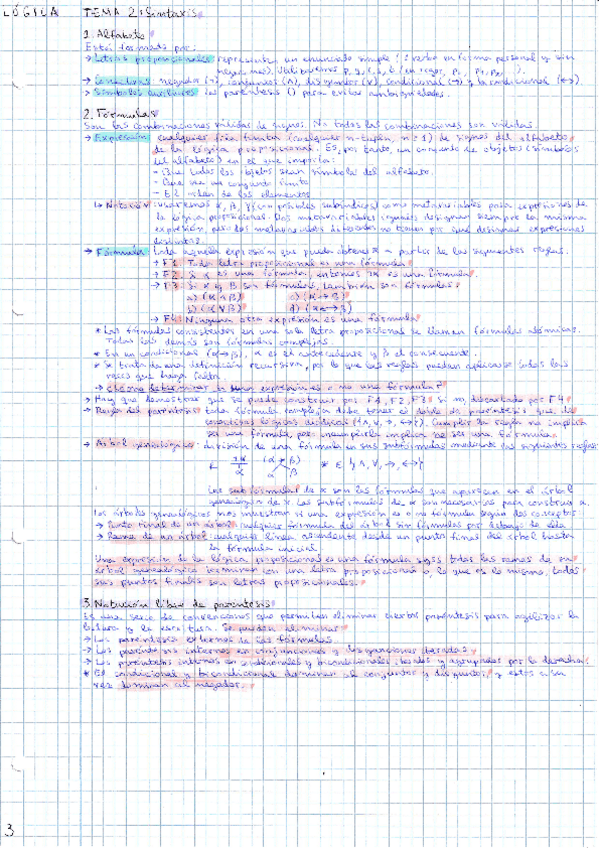 LÓGICA TEMA 2: Sintaxis
1. Alfabeto
Está formado por:
→ Letras proposicionales: representan un enunciado simple (1 verbo en forma personal y sin
negaciones). Utilizaremos p, q, r, s, t
→ Conectivas: negador (¬), conjuntor (∧), disyuntor (∨), condicional (→) y bicondicional (↔).
→ Símbolos auxiliares: los paréntesis () para evitar ambigüedades.
2. Fórmula
Son las combinaciones válidas de signos. No todas las combinaciones son válidas.
→ Expresión: cualquier fila finita (cualquier n-tupla, n≥1) de signos del alfabeto
de la lógica proposicional. Es, por tanto, un conjunto de objetos (símbolos
del alfabeto) en el que importa:
- Que todos los objetos sean símbolos del alfabeto.
- Que sea un conjunto finito
- El orden de los elementos
↳ Notación: usaremos α, β, γ (con posibles subíndices) como metavariables para expresiones de
la lógica proposicional. Dos metavariables iguales designan siempre la misma
expresión, pero dos metavariables distintas no tienen por qué designar expresiones
distintas.
→ Fórmula: toda aquella expresión que pueda obtenerse a partir de las siguientes reglas.
→ F1. Toda letra proposicional es una fórmula
→ F2. Si α es una fórmula, entonces ¬α es una fórmula.
→ F3. Si α y β son fórmulas, también son fórmulas:
a) (α ∧ β) c) (α → β)
b) (α ∨ β) d) (α ↔ β)
→ F4. Ninguna otra expresión es una fórmula
* Las fórmulas consistentes en una sola letra proposicional se llaman fórmulas atómicas.
Todas las demás son fórmulas complejas.
* En un condicional (α → β), α es el antecedente y β el consecuente.
* Se trata de una definición recursiva, por lo que las reglas pueden aplicarse todas las
veces que hagan falta.
→ ¿Cómo determinar si una expresión es o no una fórmula?
→ Hay que demostrar que se puede construir por F1, F2, F3. Si no, descartado por F4
→ Regla del paréntesis: toda fórmula compleja debe tener el doble de paréntesis que de
conectivas lógicas diádicas (∧, ∨, →, ↔). Cumplir la regla no implica
ser una fórmula, pero incumplirla implica no ser una fórmula.
→ Árbol genealógico: división de una fórmula en sus subfórmulas mediante las siguientes reglas:
¬α (α * β) * ∈ {∧, ∨, →, ↔}
α α β
Las subfórmulas de α son las fórmulas que aparecen en el árbol
genealógico de α. Las subfórmulas de α son necesarias para construir α.
Los árboles genealógicos nos muestran si una expresión es o no fórmula según dos conceptos:
→ Punto final de un árbol: cualquier fórmula del árbol sin fórmulas por debajo de ella
→ Rama de un árbol: cualquier línea ascendente desde un punto final del árbol hasta
la fórmula inicial.
Una expresión de la lógica proposicional es una fórmula syss todas las ramas de su
árbol genealógico terminan con una letra proposicional o, lo que es lo mismo, todos
sus puntos finales son letras proposicionales.
3. Notación libre de paréntesis
Es una serie de convenciones que permiten eliminar ciertos paréntesis para agilizar la
lectura y la escritura. Se pueden eliminar:
→ Los paréntesis externos de las fórmulas.
→ Los paréntesis internos en conjunciones y disyunciones
→ Los paréntesis internos en condicionales y bicondicionales, agrupados por la derecha.
* El condicional y bicondicional dominan al conjuntor y disyuntor, y estos a su
vez dominan al negador.
3